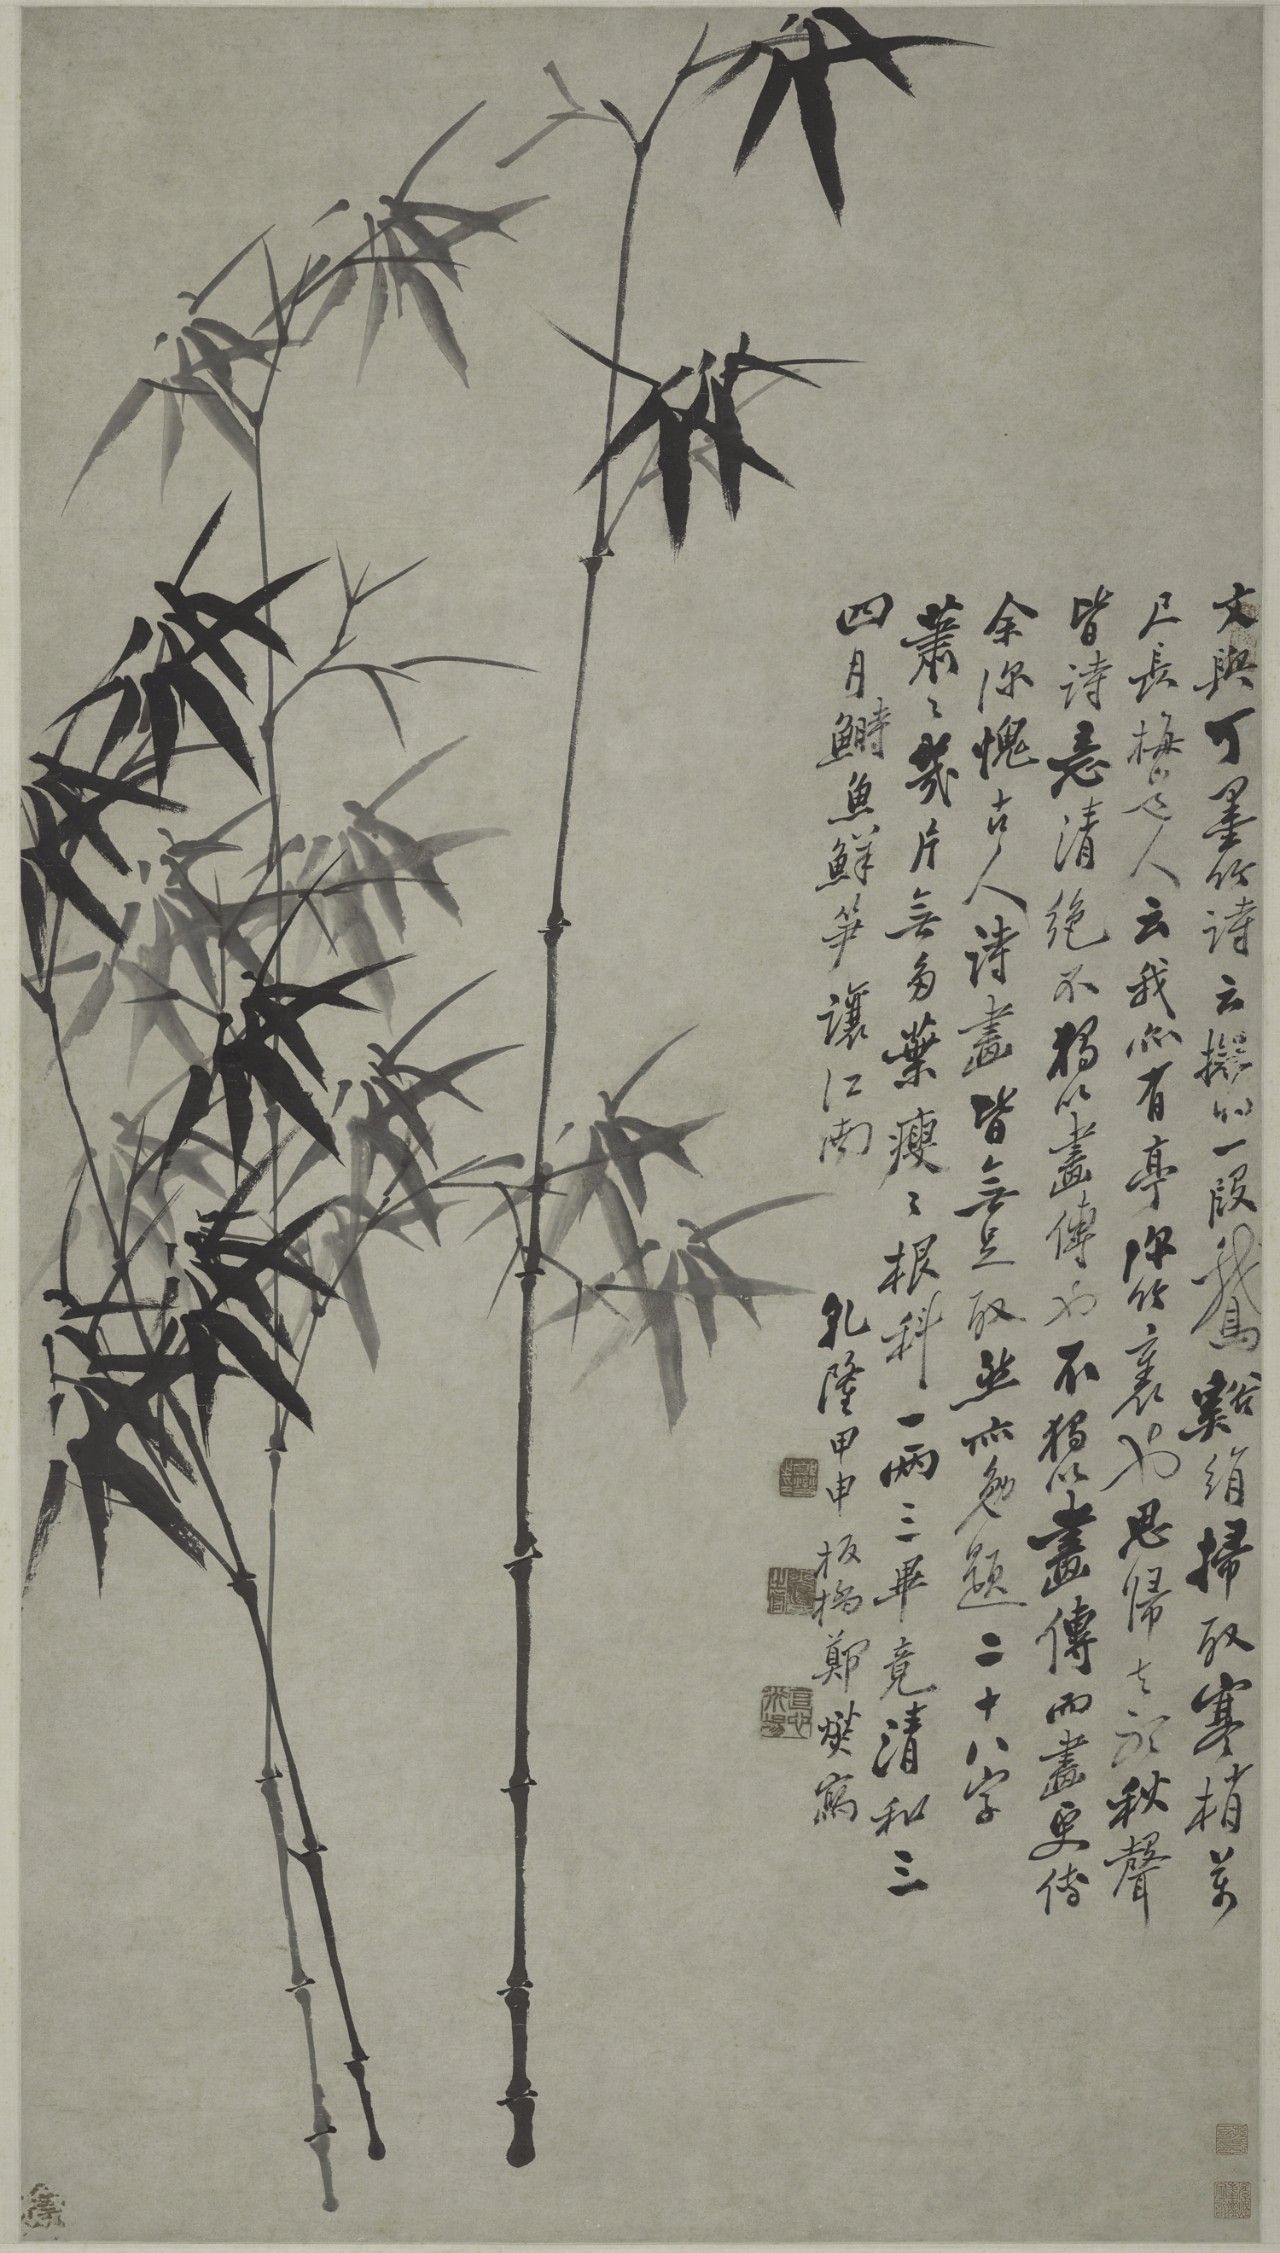 文與可墨竹詩云擬將一段鵝谿絹掃取寒梢萬
尺長梅道人云我亦有亭深竹裏也思歸去聽秋聲
皆詩意清絕不獨以畫傳也不獨以畫傳而畫更傳
余深愧古人詩畫皆無足取然亦勉題二十八字
蕭〻幾片無多葉瘦〻根科一兩三畢竟清和三
四月鰣魚鮮笋讓江南
乹隆甲申板橋鄭燮寫